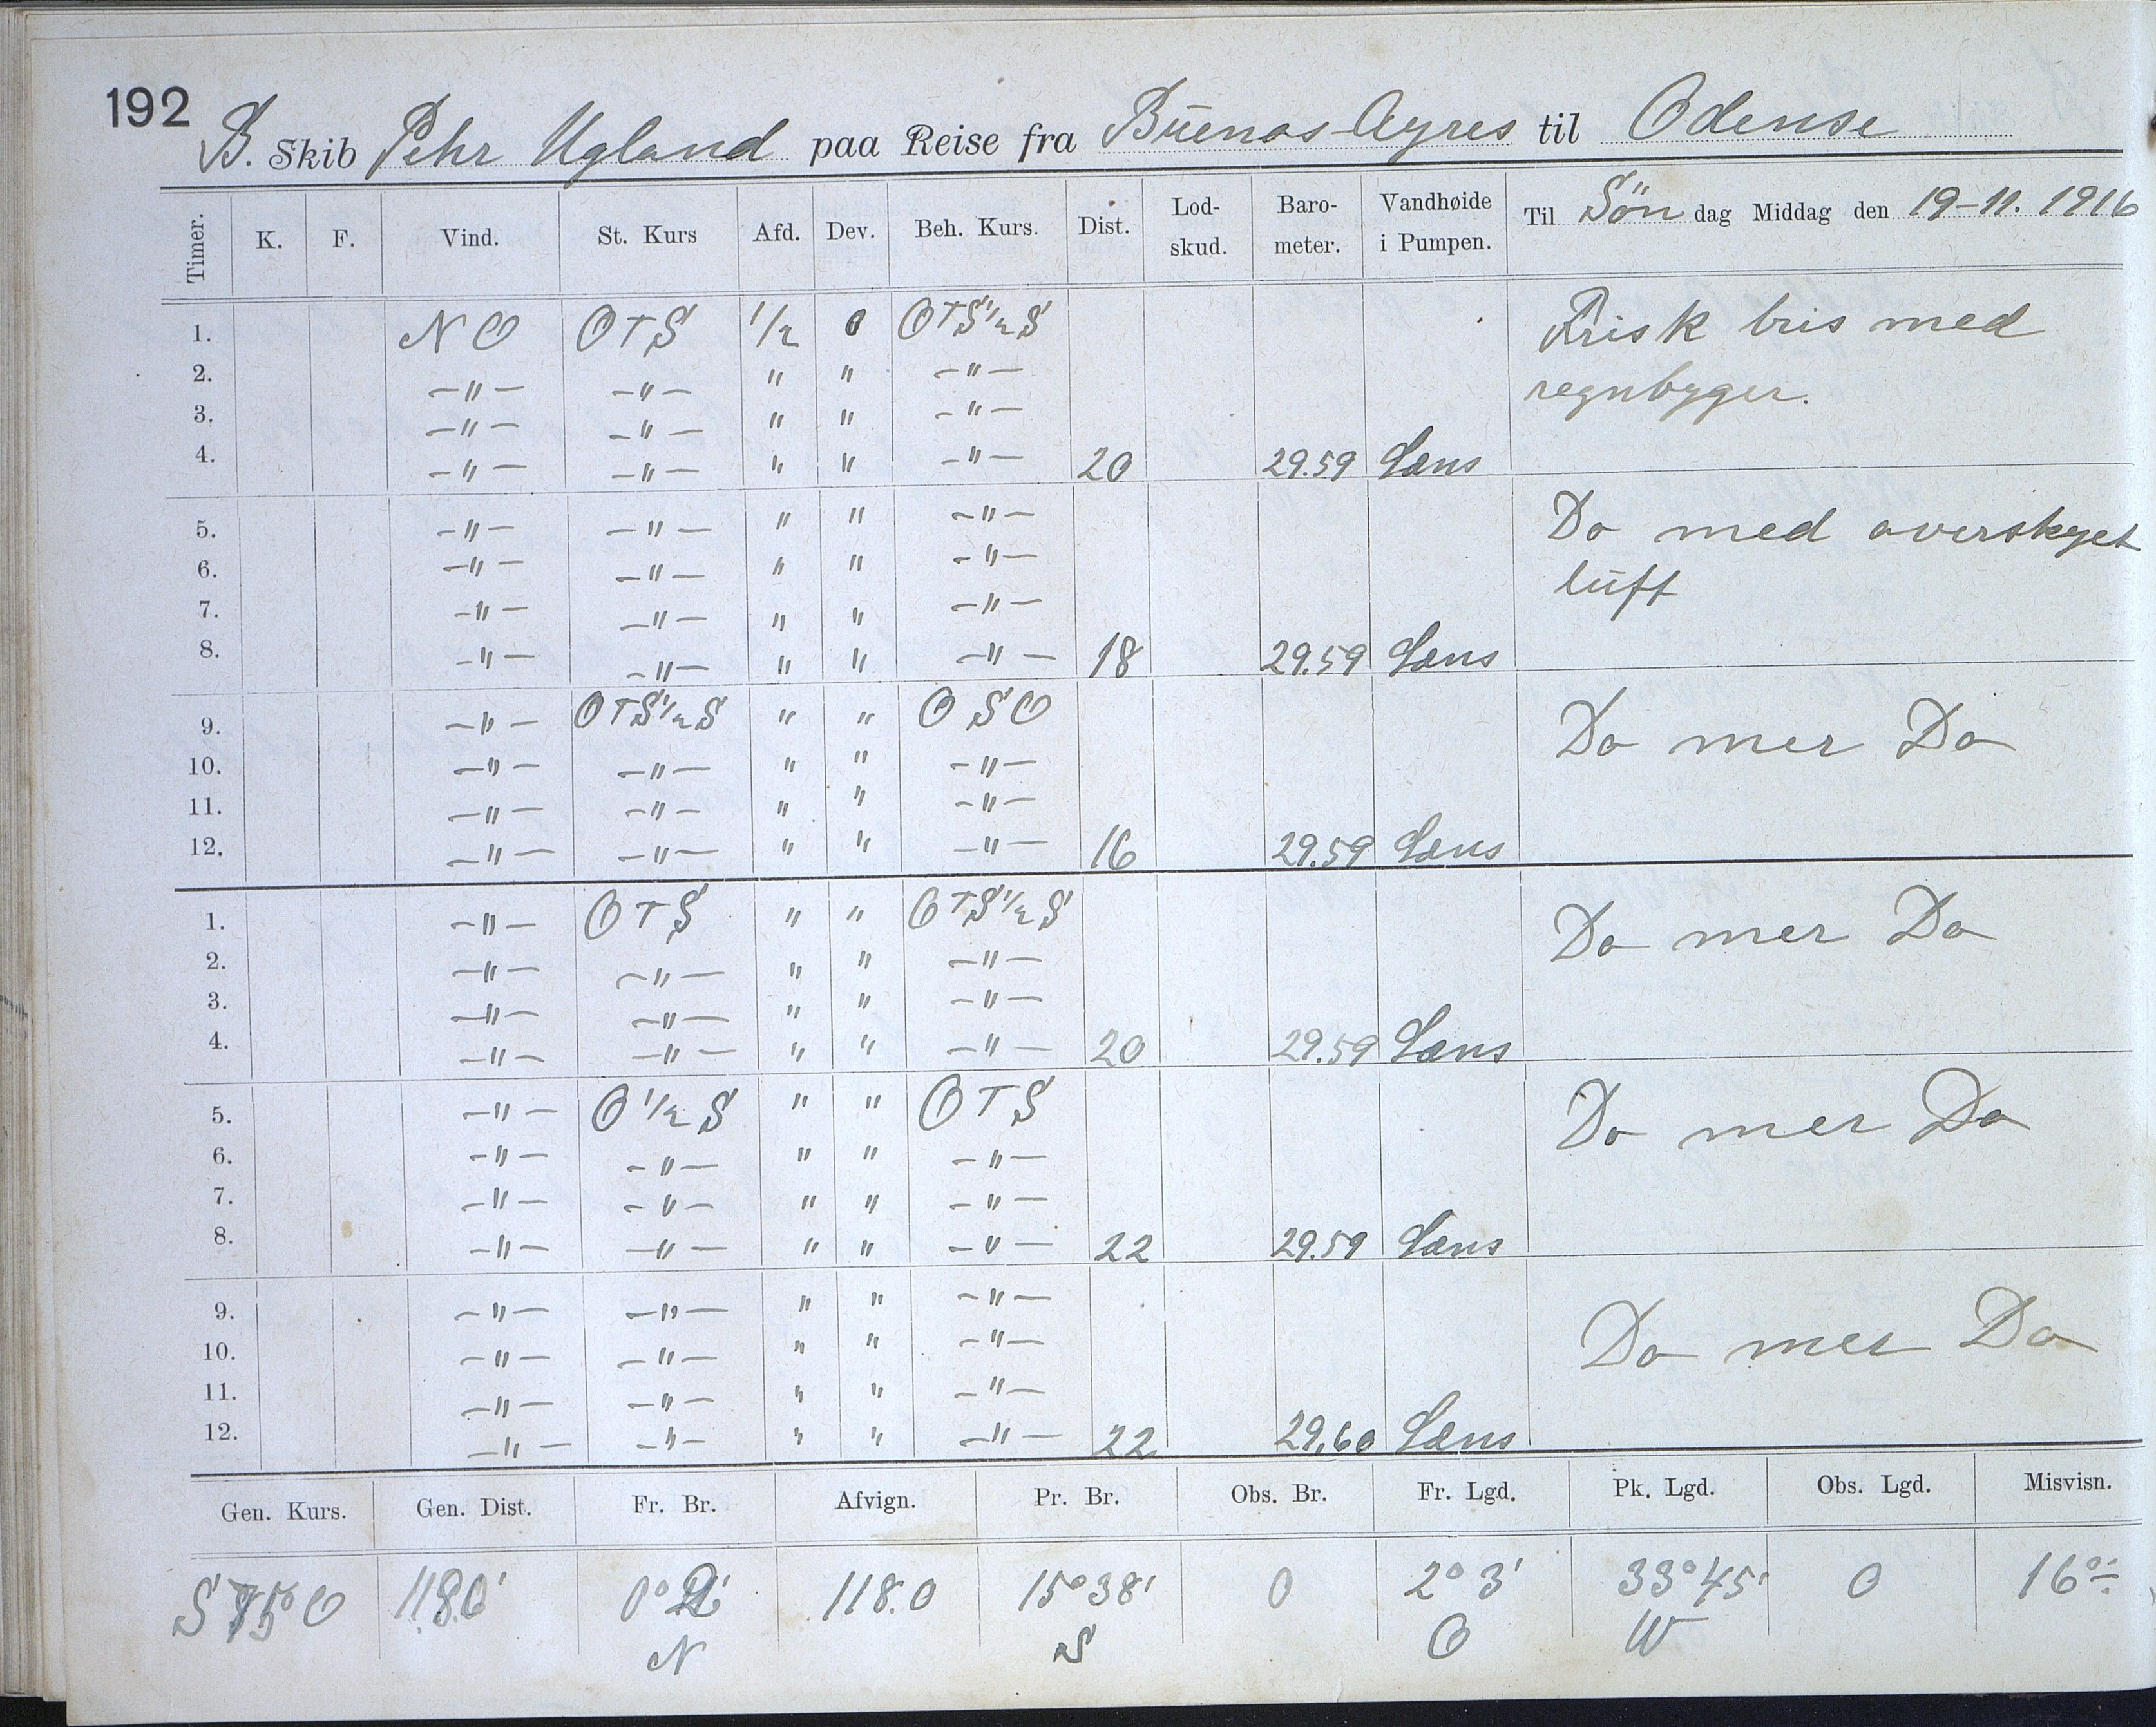 192
B. Skib Pehr Ugland paa Reise fra Buenos-Ayres til Odense
Timer. K. F. Vind. St. Kurs Afd. Dev. Beh. Kurs. Dist. Lod-skud. Baro-meter. Vandhøide i Pumpen. Til Søn dag Middag den 19-11. 1916
1. NO OTS 1/2 0 OTS1/2S Frisk bris med
2. -"- -"- " " -"- regnbyger.
3. -"- -"- " " -"-
4. -"- -"- " " -"- 20 29.59 Læns
5. -"- -"- " " -"- Do med overskyet
6. -"- -"- " " -"- luft
7. -"- -"- " " -"-
8. -"- -"- " " -"- 18 29.59 Læns
9. -"- OTS1/2S " " OSO Do mer Do
10. -"- -"- " " -"-
11. -"- -"- " " -"-
12. -"- -"- " " -"- 16 29.59 Læns
1. -"- OTS " " OTS1/2S Do mer Do
2. -"- -"- " " -"-
3. -"- -"- " " -"-
4. -"- -"- " " -"- 20 29.59 Læns
5. -"- O1/2S " " OTS Do mer Do
6. -"- -"- " " -"-
7. -"- -"- " " -"-
8. -"- -"- " " -"- 22 29.59 Læns
9. -"- -"- " " -"- Do mer Do
10. -"- -"- " " -"-
11. -"- -"- " " -"-
12. -"- -"- " " -"- 22 29.60 Læns
Gen. Kurs. Gen. Dist. Fr. Br. Afvign. Pr. Br. Obs. Br. Fr. Lgd. Pk. Lgd. Obs. Lgd. Misvisn.
S O 118.0' 118.0 15° 38' 0 2° 3' 33° 45' 0 16°
N S O W